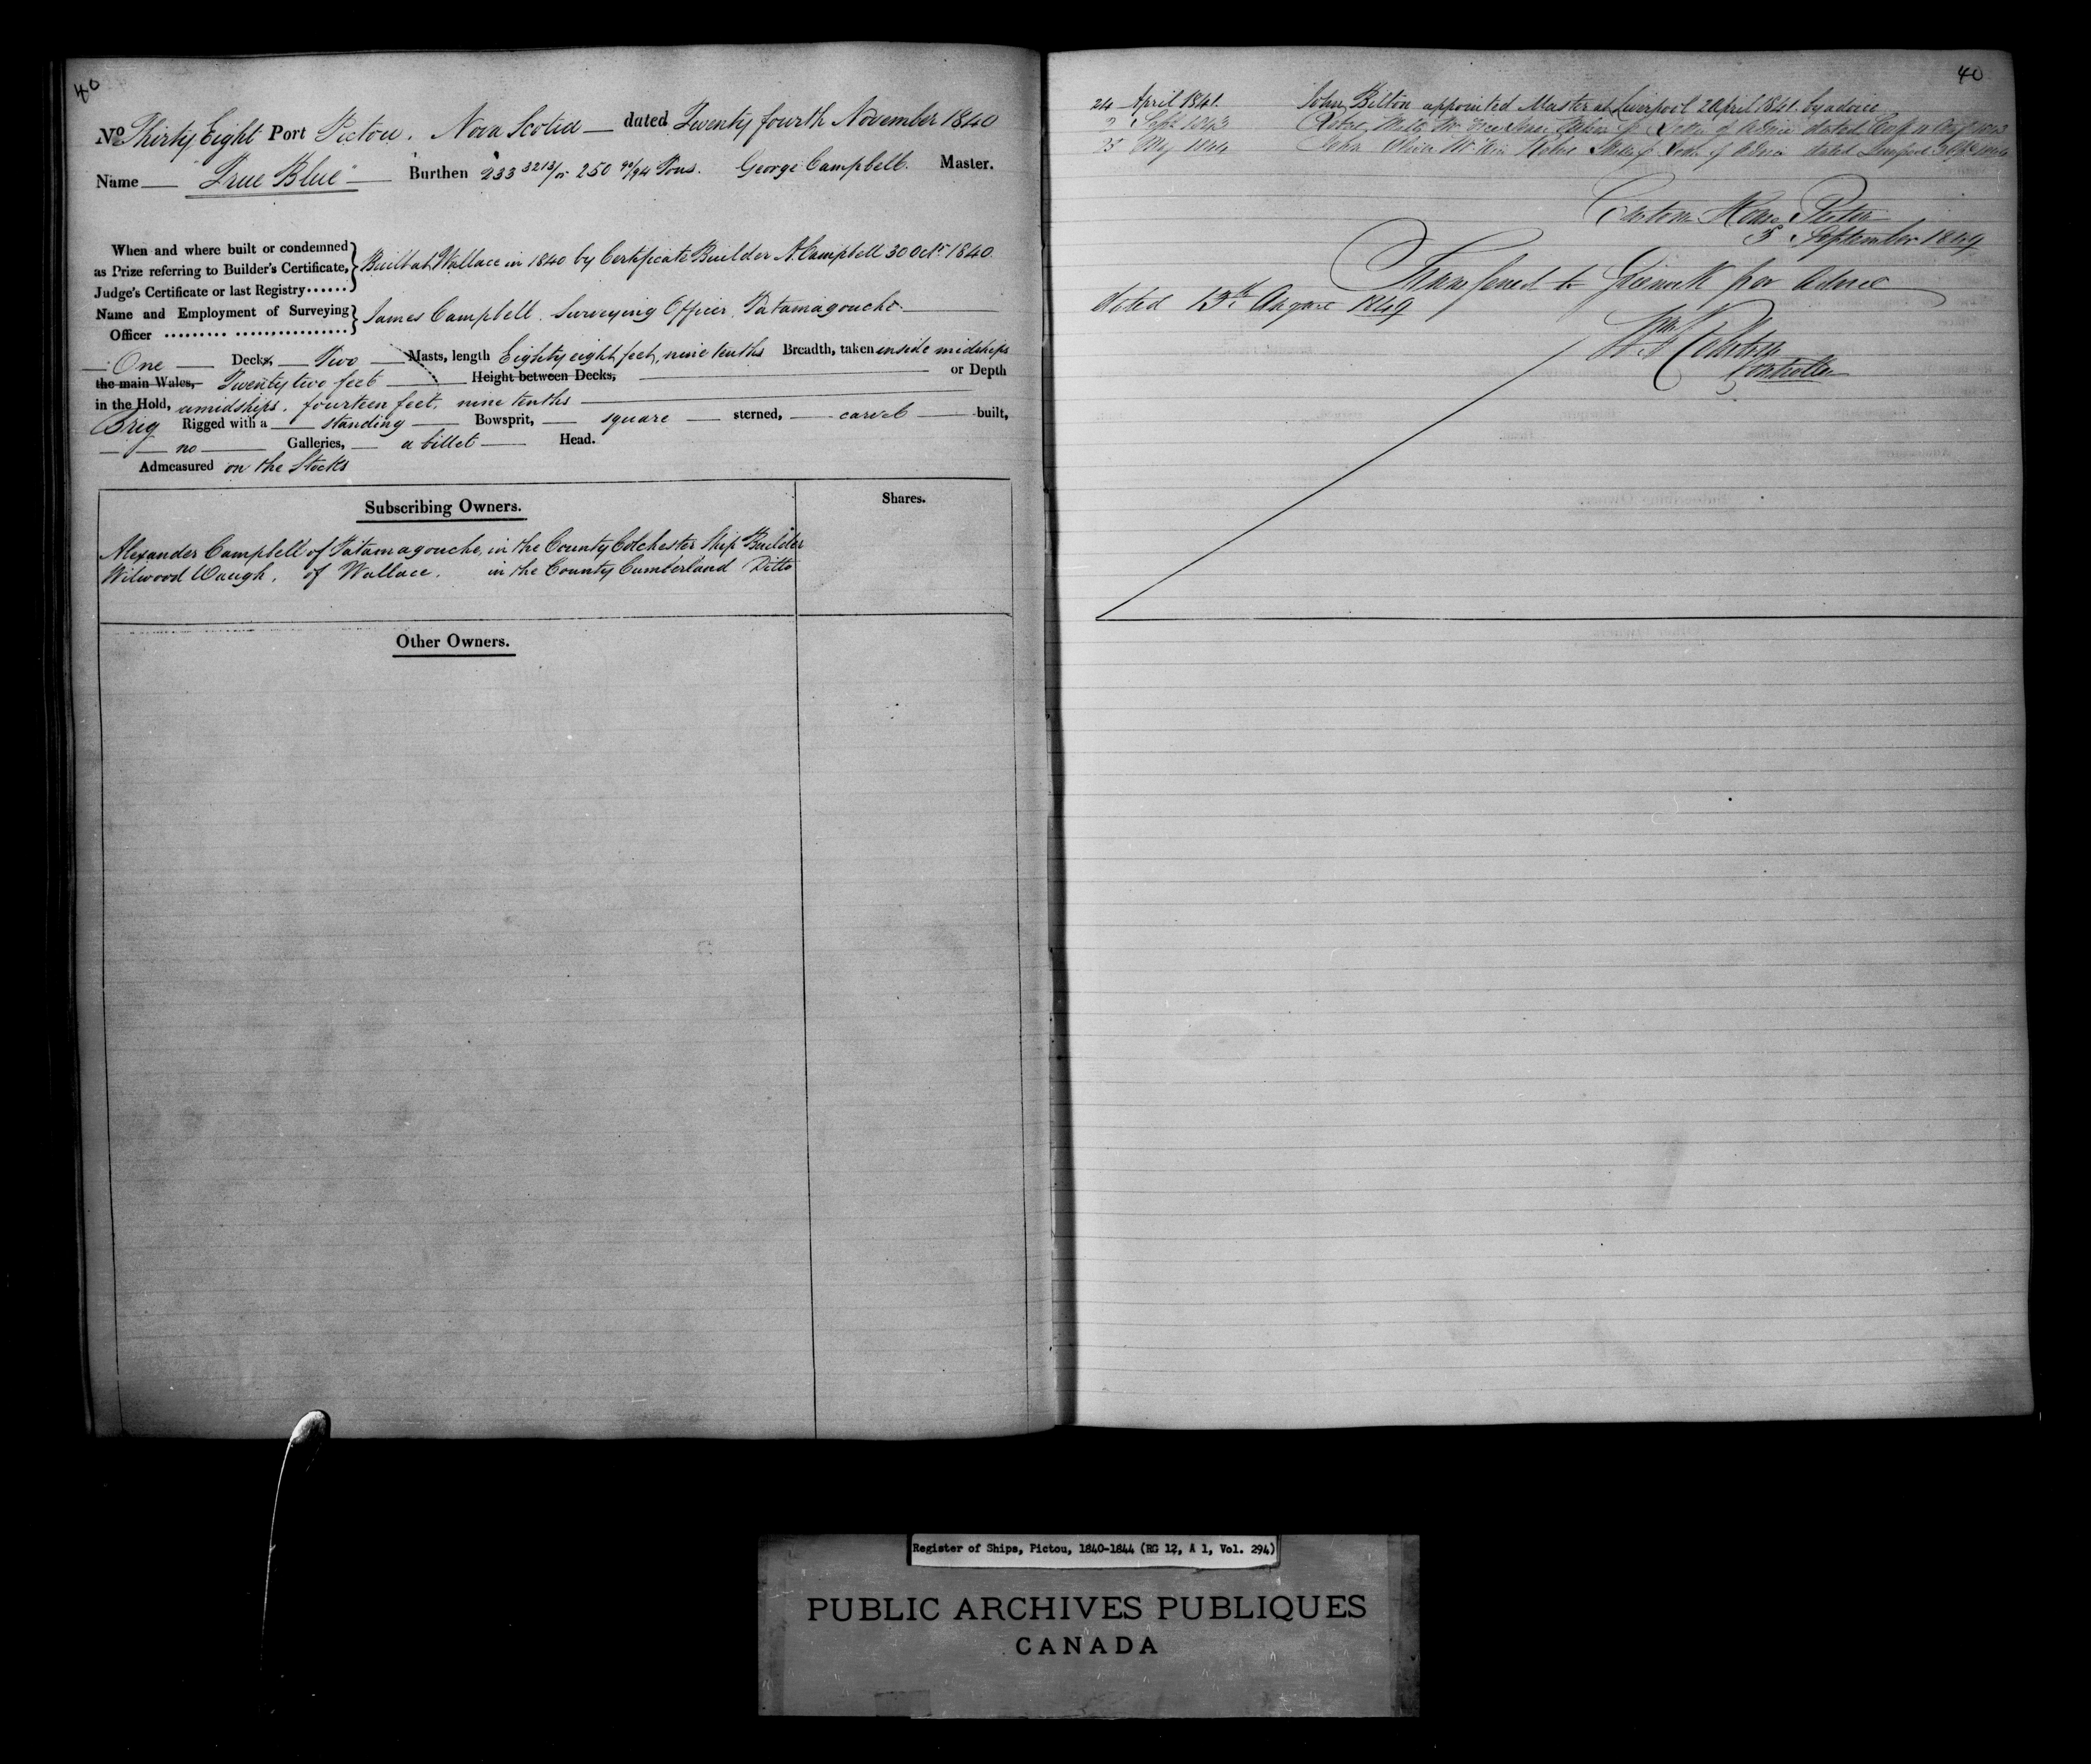 40
No Thirty Eight Port Pictou, Nova Scotia dated Twenty fourth November 1840
Name "True Blue" Burthen 233 3213/ or 250 90/94 Tons. George Campbell. Master.
When and where built or condemned
as Prize referring to Builder's Certificate, Built at Wallace in 1840 by Certificate Builder A. Campbell 30 Octr. 1840.
Judge's Certificate or last Registry......
Name and Employment of Surveying James Campbell. Surveying Officer. Tatamagouche.
Officer
One Decks, Two Masts, length Eighty eight feet, nine tenths Breadth, taken inside midships
the main Wales, Twenty two feet Height between Decks, or Depth
in the Hold, amidships, fourteen feet, nine tenths
Brig Rigged with a standing Bowsprit, square sterned, carvel built,
no Galleries, a billet Head.
Admeasured on the Stocks
Subscribing Owners. Shares.
Alexander Campbell of Tatamagouche, in the County Colchester Ship Builder
Wilwood Waugh, of Wallace, in the County Cumberland Ditto
Other Owners.
40
24 April 1841. John Bilton appointed Master at Liverpool 2 April 1841. by advice
Sept 1843 of advice dated
May 1844 John of advice dated Liverpool
Custom House Pictou
5 September 1849
Transferred to Greenock per advice
dated 13th August 1849
Controller
Register of Ships, Pictou, 1840-1844 (RG 12, A 1, Vol. 294)
PUBLIC ARCHIVES PUBLIQUES
CANADA